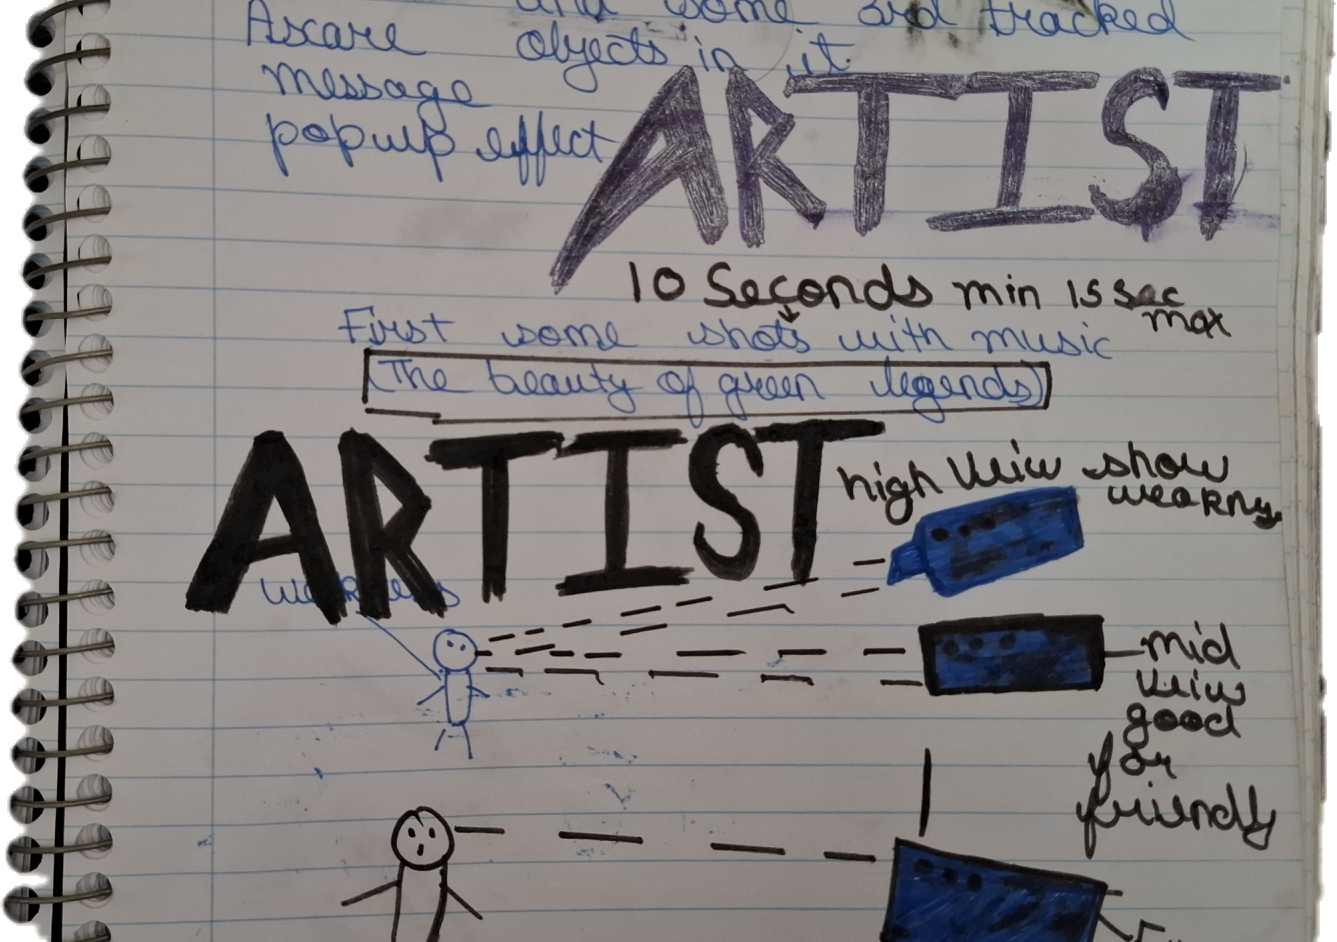 and some 3rd tracked
Ascare objects in it
message
popup effect
ARTIST
10 Seconds min 15 sec
max
First some shots with music
(The beauty of green legends)
ARTIST
high veiw show
weakness
mid
veiw
good
for
friendly